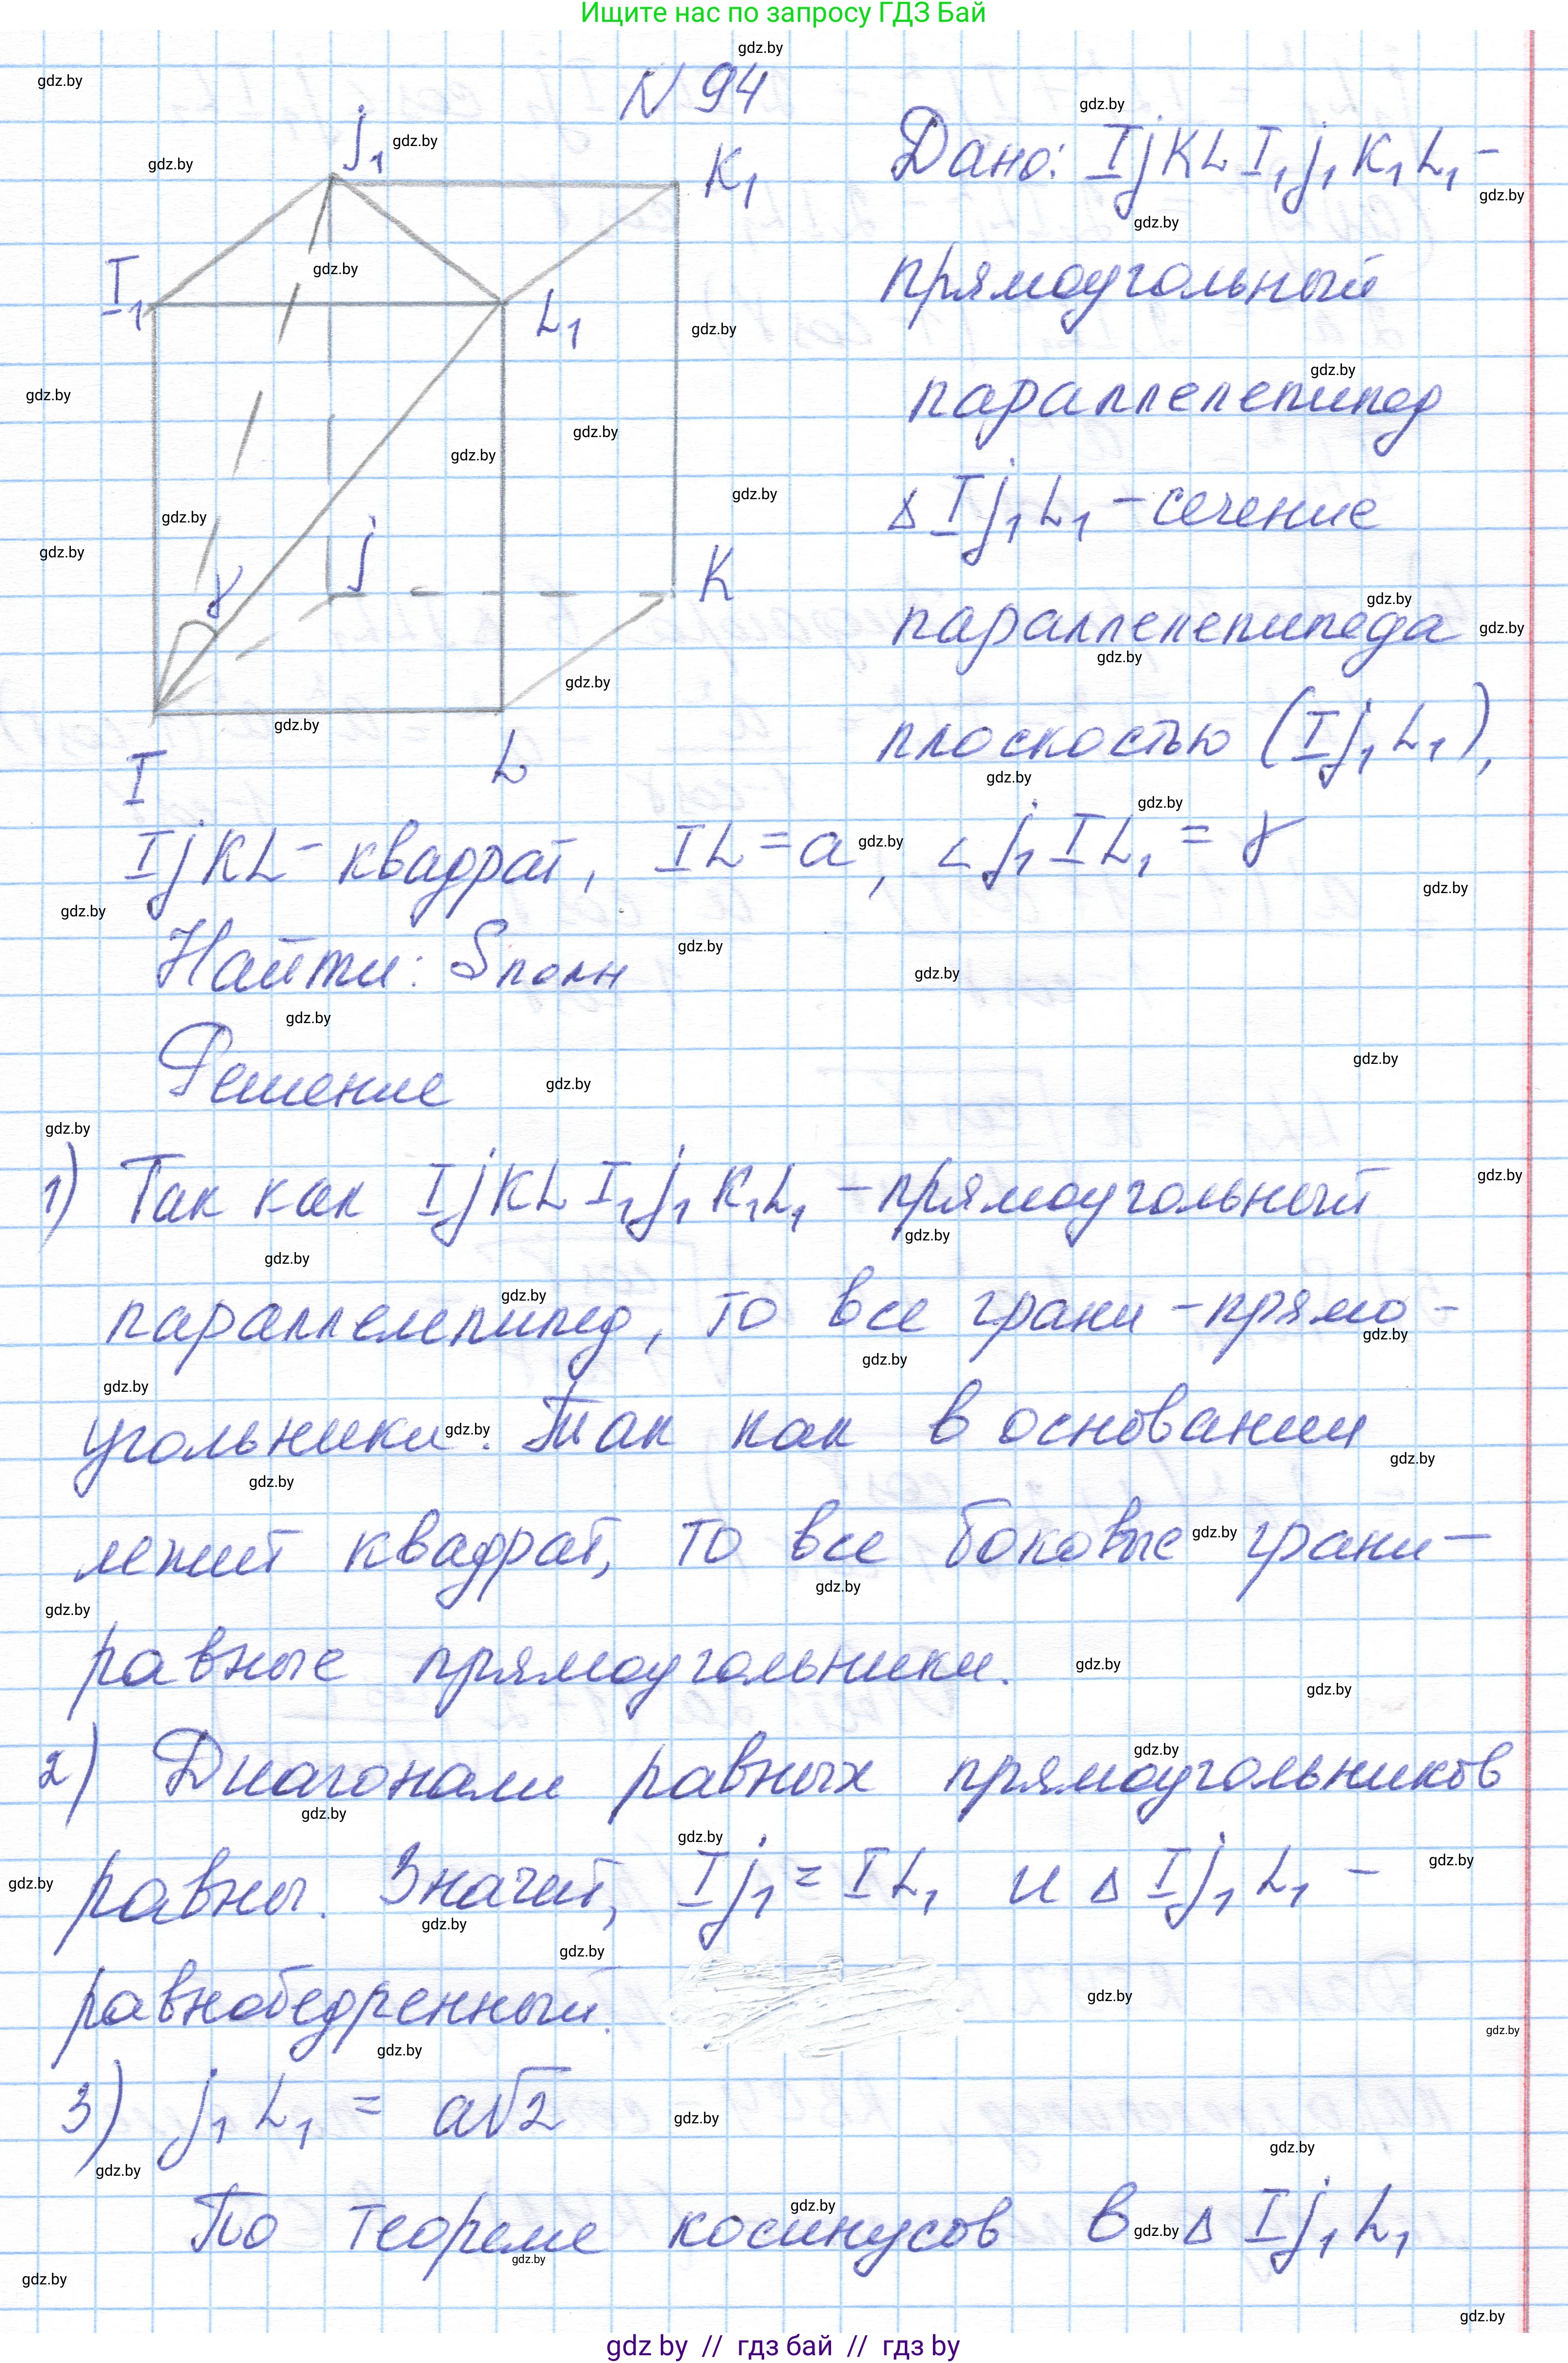 Ищите нас по запросу ГДЗ Бай
N 94
j₁
K₁
I₁
L₁
j
K
γ
I
L
Дано: IjKLI₁j₁K₁L₁ –
прямоугольный
параллелепипед
Δ Ij₁L₁ – сечение
параллелепипеда
плоскостью (Ij₁L₁),
IjKL – квадрат, IL = a, ∠j₁IL₁ = γ
Найти: Sполн
Решение
1) Так как IjKLI₁j₁K₁L₁ – прямоугольный
параллелепипед, то все грани – прямо-
угольники. Так как в основании
лежит квадрат, то все боковые грани –
равные прямоугольники.
2) Диагонали равных прямоугольников
равны. Значит, Ij₁ = IL₁ и Δ Ij₁L₁ –
равнобедренный.
3) j₁L₁ = a√2
По теореме косинусов в Δ Ij₁L₁
gdz by // гдз бай // гдз by